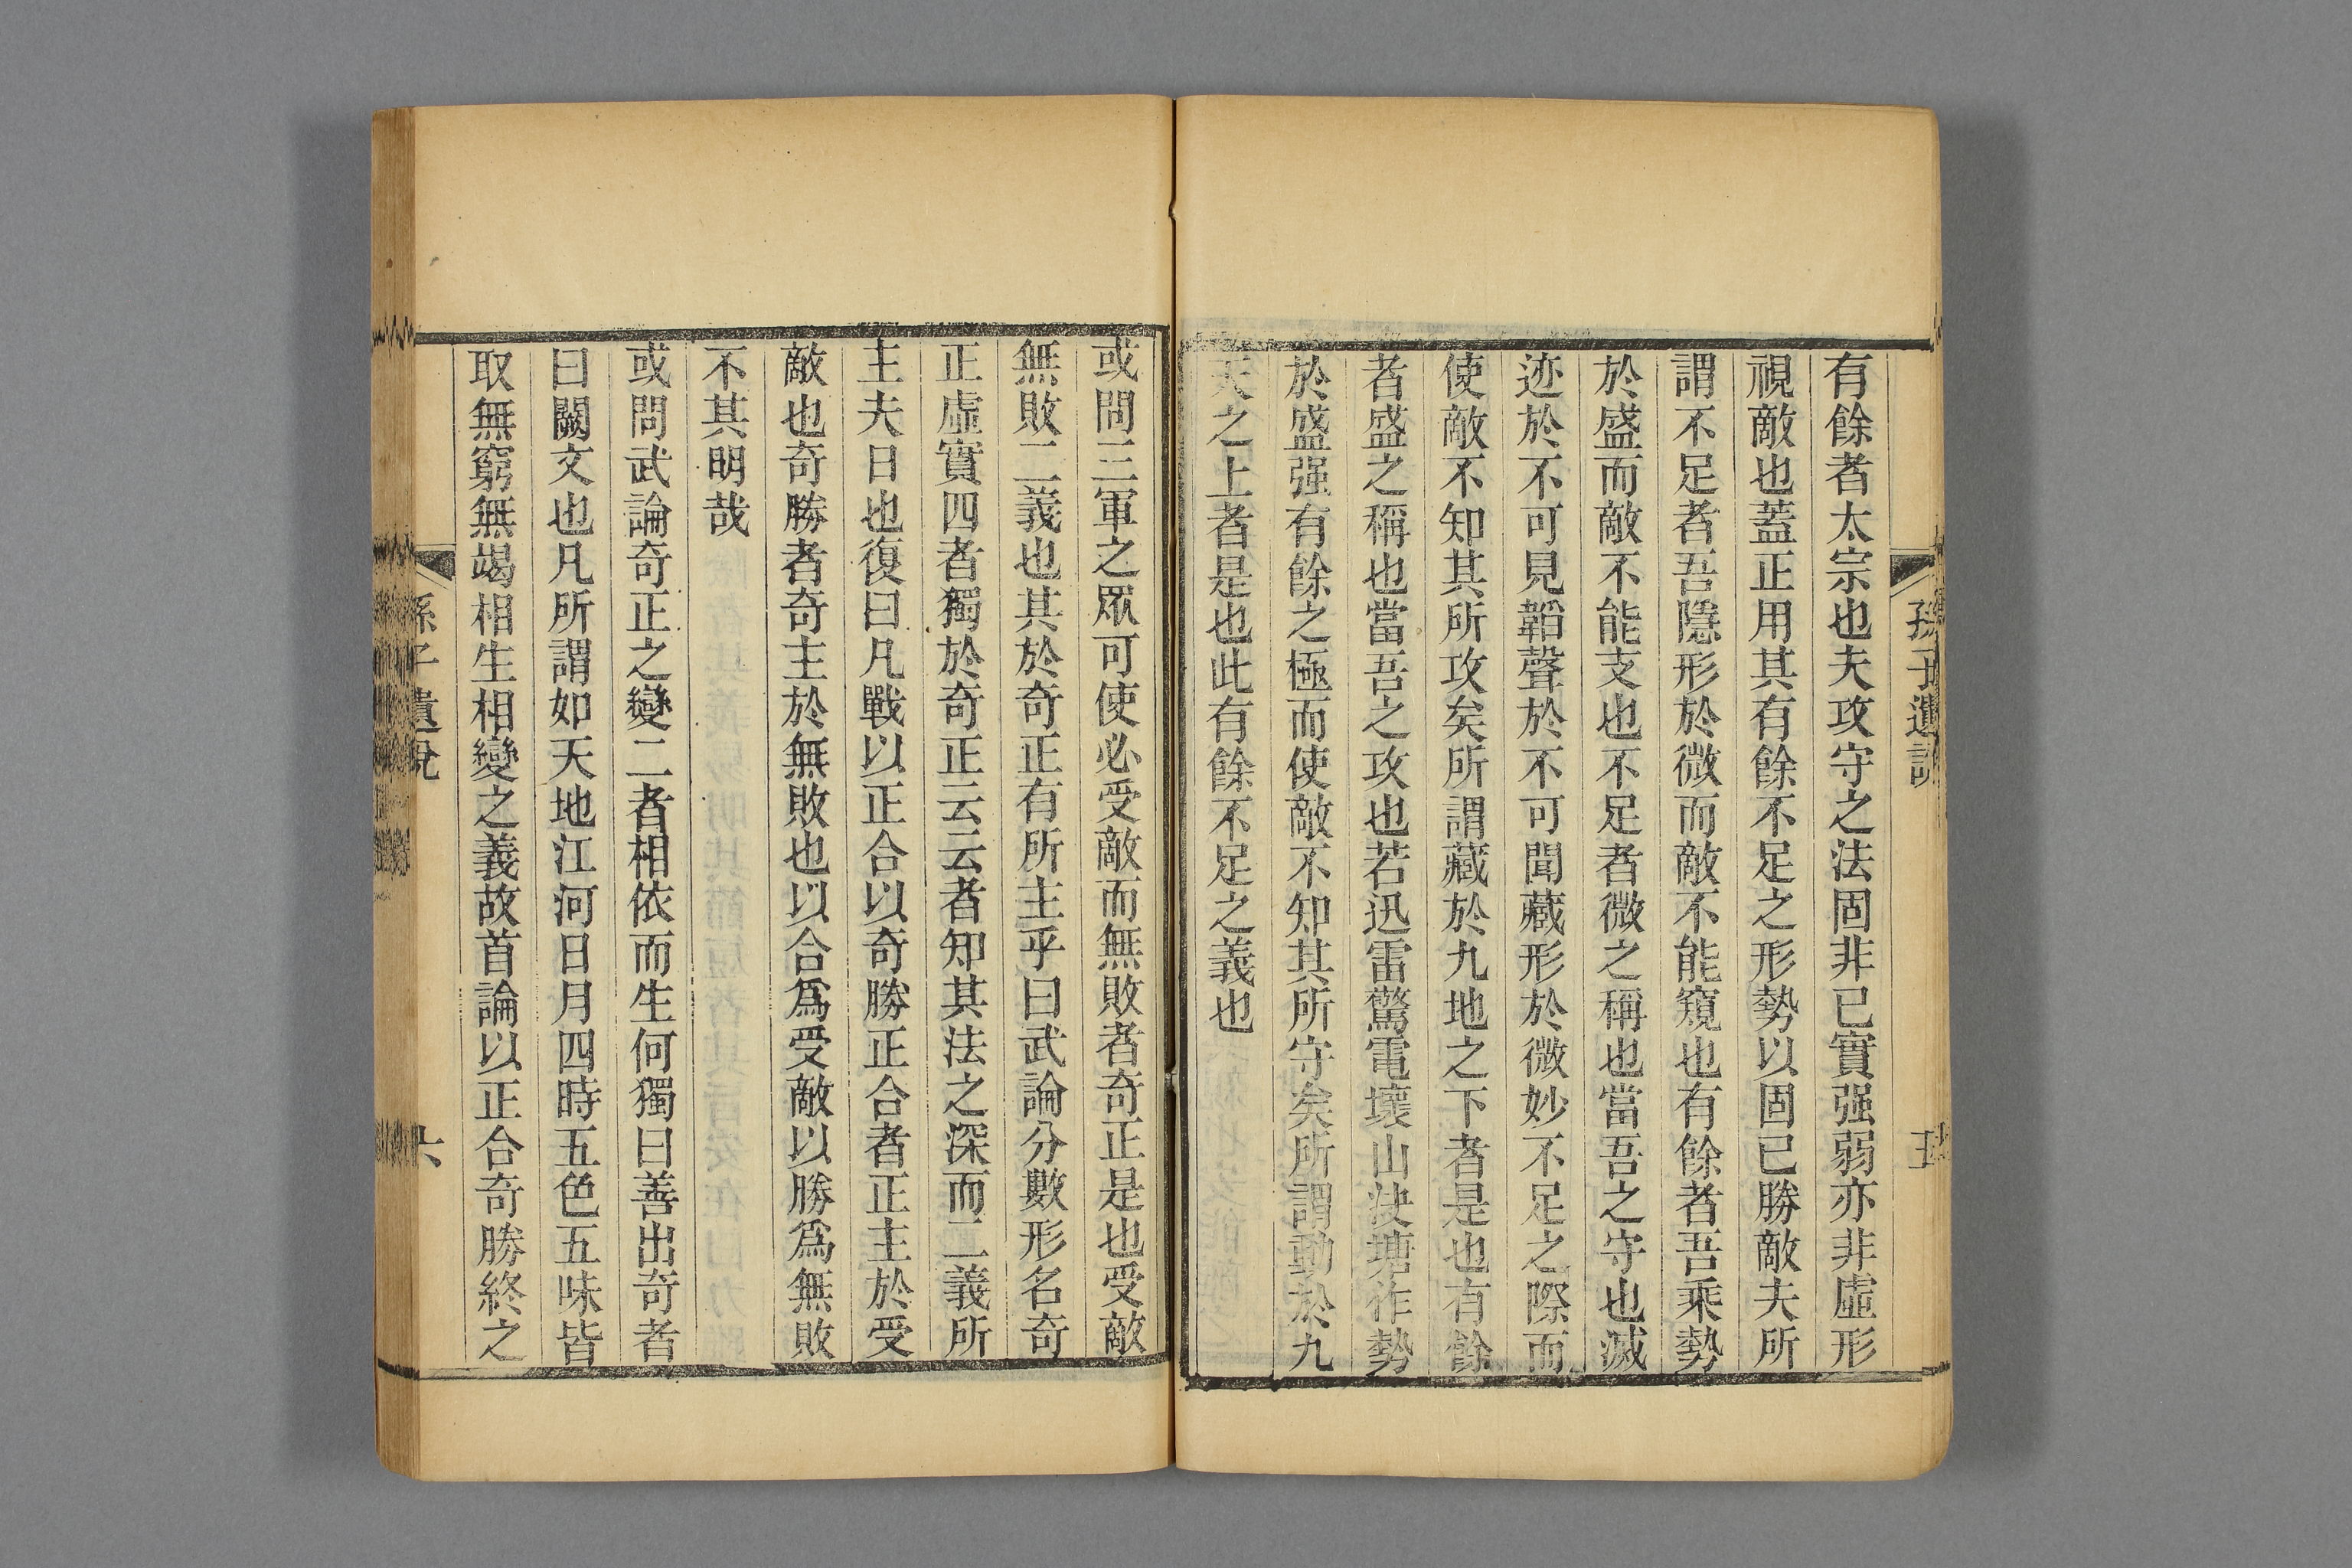 孫子遺說
五
有餘者太宗也夫攻守之法固非已實强弱亦非虛形
視敵也蓋正用其有餘不足之形勢以固已勝敵夫所
謂不足者吾隱形於微而敵不能窺也有餘者吾乘勢
於盛而敵不能支也不足者微之稱也當吾之守也滅
迹於不可見韜聲於不可聞藏形於微妙不足之際而
使敵不知其所攻矣所謂藏於九地之下者是也有餘
者盛之稱也當吾之攻也若迅雷驚電壞山決塘作勢
於盛强有餘之極而使敵不知其所守矣所謂動於九
天之上者是也此有餘不足之義也
或問三軍之眾可使必受敵而無敗者奇正是也受敵
無敗二義也其於奇正有所主乎曰武論分數形名奇
正虛實四者獨於奇正云云者知其法之深而二義所
主夫曰也復曰凡戰以正合以奇勝正合者正主於受
敵也奇勝者奇主於無敗也以合爲受敵以勝爲無敗
不其明哉
或問武論奇正之變二者相依而生何獨曰善出奇者
曰闕文也凡所謂如天地江河日月四時五色五味皆
取無窮無竭相生相變之義故首論以正合奇勝終之
孫子遺說
六